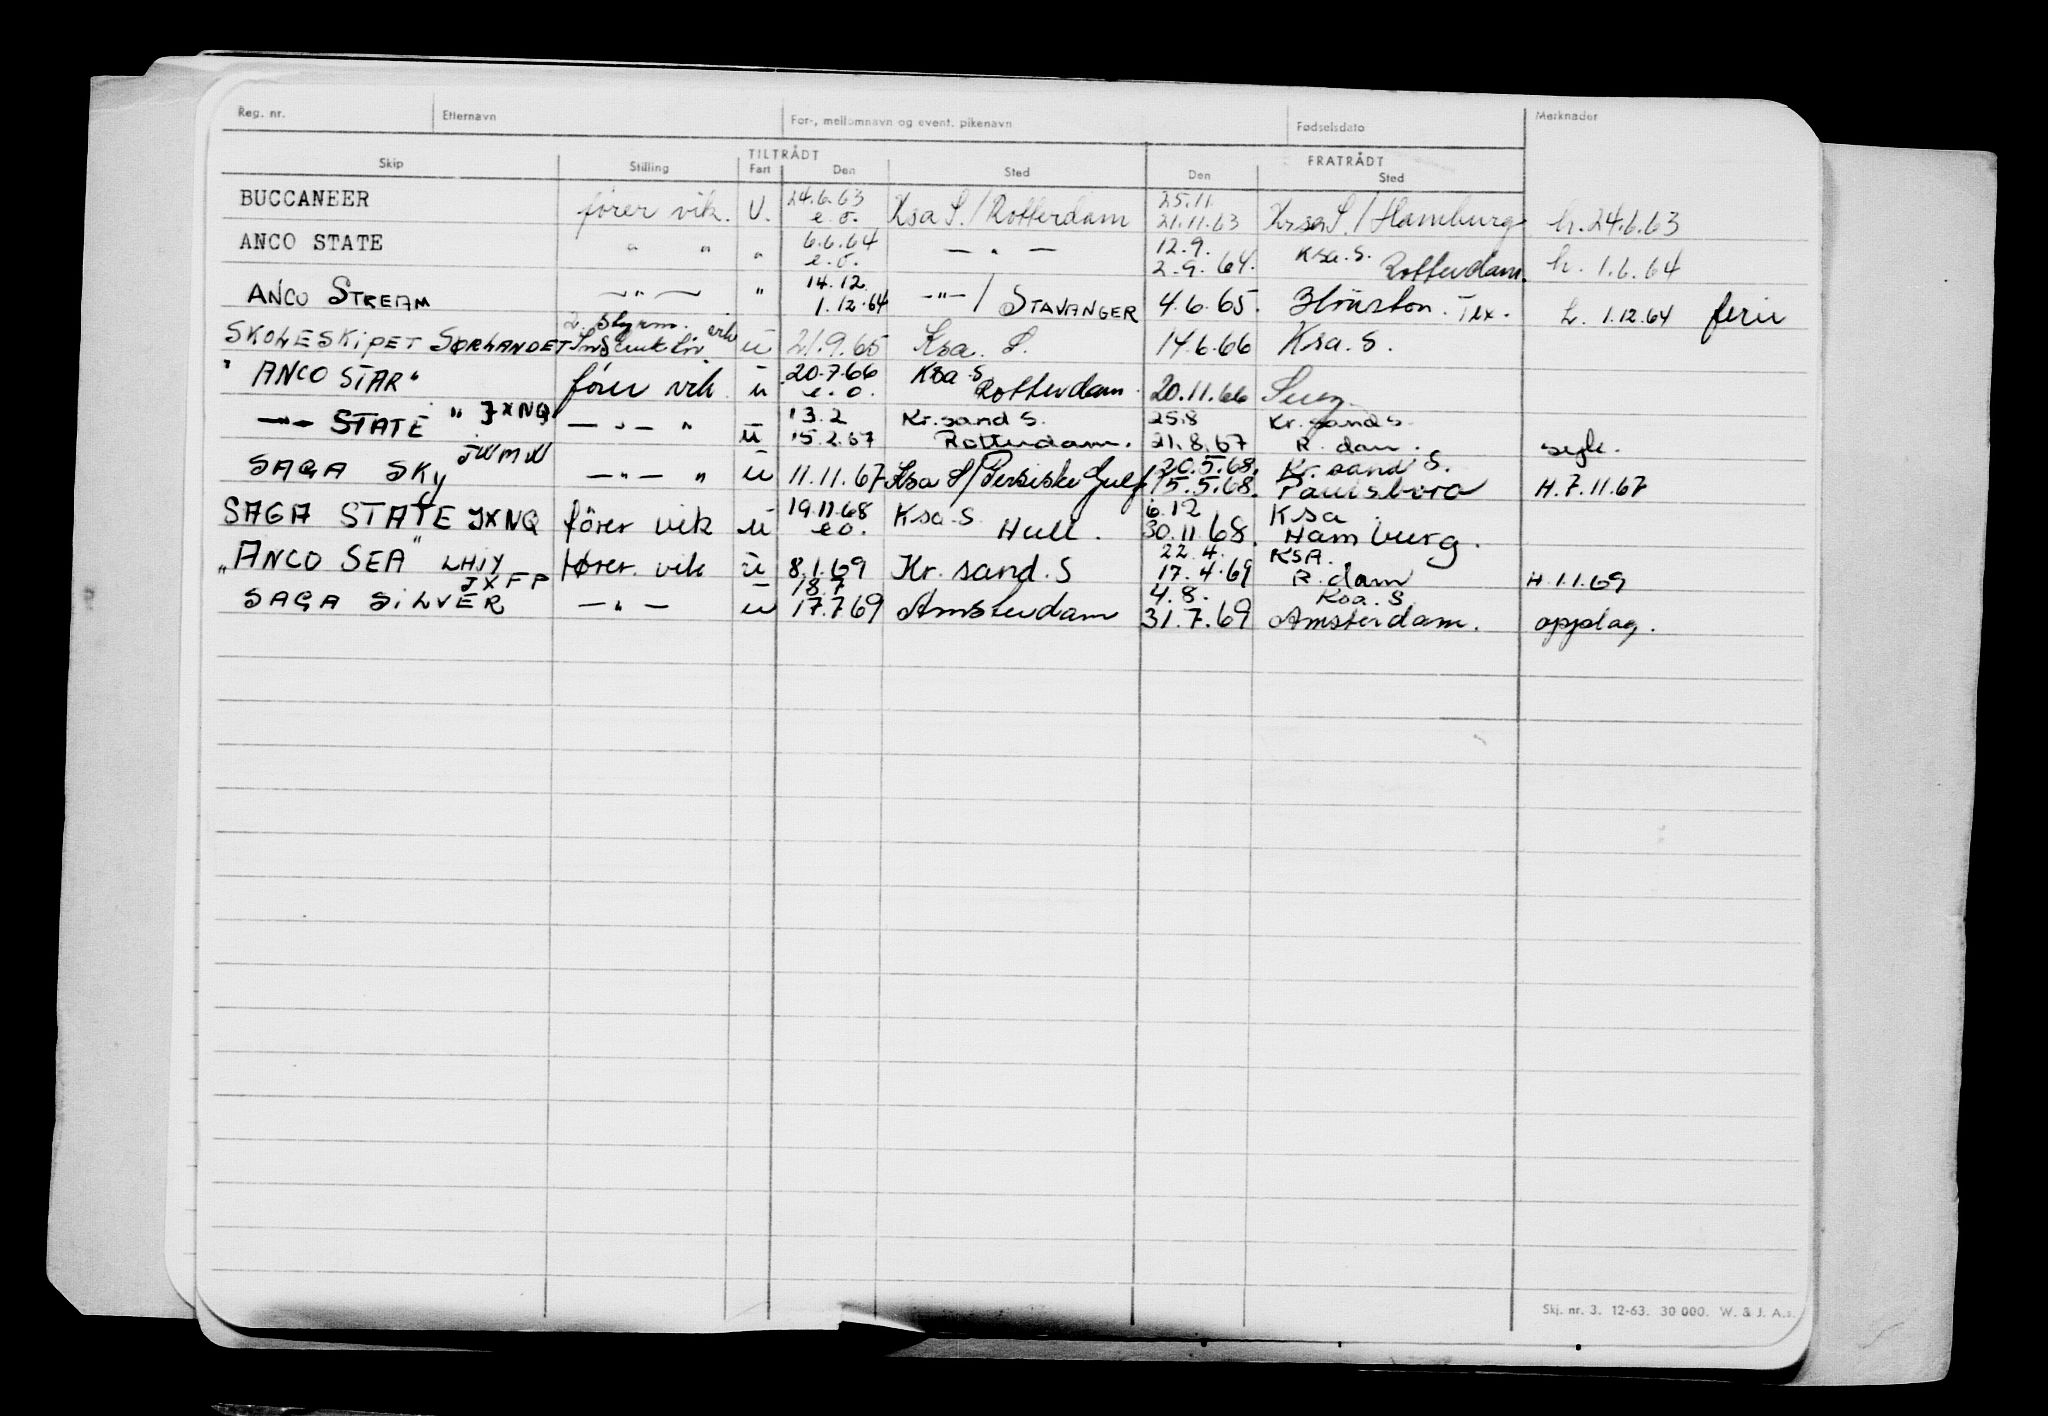 Reg. nr. Etternavn For-, mellomnavn og event. pikenavn Fødselsdato Merknader
TILTRÅDT FRATRÅDT
Skip Stilling Fart Den Sted Den Sted
BUCCANEER fører vik. U. 24.6.63 e.o. Ksa S./Rotterdam 25.11 21.11.63 Kr.sa S./Hamburg h. 24.6.63
ANCO STATE " " " 6.6.64 e.o. — " — 12.9. 2.9.64. Ksa. S. Rotterdam. h. 1.6.64
ANCO STREAM — " — " 14.12 1.12.64 — " — / STAVANGER 4.6.65. Houston. Tex. h. 1.12.64 ferie
SKOLESKIPET SØRLANDET 2. styrm. Instruktör u 21.9.65 Ksa. S. 14.6.66 Ksa. S.
"ANCO STAR" fører vik u 20.7.66 e.o. Ksa. S Rotterdam. 20.11.66 Suez.
— " — STATE " JXNQ — " — " u 13.2 15.2.67 Kr.sand S. Rotterdam. 25.8 21.8.67 Kr. sand S. R. dam. sykt.
SAGA SKY JWMW — " — " u 11.11.67 Ksa S/Persiske Gulf 20.5.68. 15.5.68. Kr. sand S. Paulsboro H. 7.11.67
SAGA STATE JXNQ fører vik u 19.11.68 e.o. Ksa. S. Hull. 6.12 30.11.68. Ksa. Hamburg.
"ANCO SEA" LHIY fører vik u 8.1.69 Kr. sand. S 22.4. 17.4.69 KSA. R. dam H. 1.1.69
SAGA SILVER JXFP — " — u 18.7 17.7.69 Amsterdam 4.8. 31.7.69 Ksa. S Amsterdam. opplag.
Skj. nr. 3. 12-63. 30 000. W. & J. A.s.